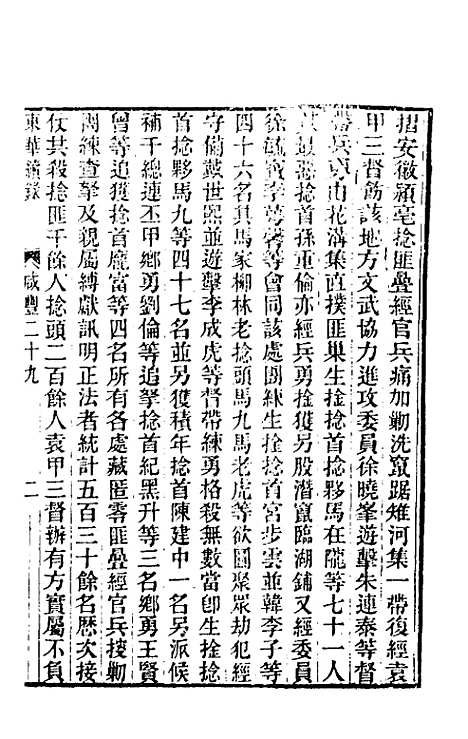 招安徽潁亳捻匪疊經官兵痛加勦洗竄踞雉河集一帶復經袁
甲三督飭該地方文武協力進攻委員徐曉峯遊擊朱連泰等督
帶兵勇由花溝集直撲匪巢生捡捻首捻夥馬在隴等七十一人
其最恐捻首孫重倫亦經兵勇捡獲另股潛竄臨湖鋪又經委員
徐 李 等會同該處團練生捡捻首宮步雲並韓李子等
四十六名其馬家柳林老捻頭馬九馬老虎等欲圖聚眾劫犯經
守備戴世熙並遊擊李成虎等督帶練勇格殺無數當卽生捡捻
首捻夥馬九等四十七名並另獲積年捻首陳建中一名另派候
補千總連丕甲鄉勇劉倫等追拏捻首紀黑升等三名鄉勇王賢
曾等追獲捻首龐富等四名所有各處藏匿零匪疊經官兵搜勦
團練查拏及親屬縛獻訊明正法者統計五百三十餘名歷次接
仗共殺捻匪千餘人捻頭二百餘人袁甲三督辦有方實屬不負
東華續錄 咸豐二十九 二